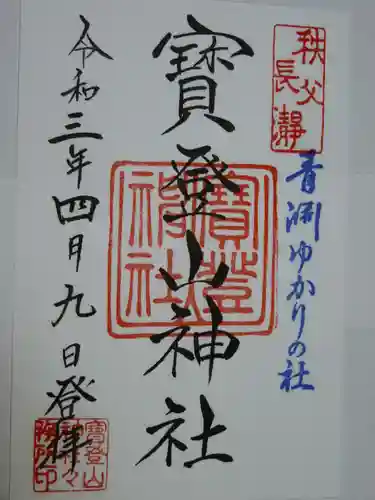 秩父
長瀞
青淵ゆかりの社
寶登山神社
寶登山
神社
令和三年四月九日登拜
寶登山